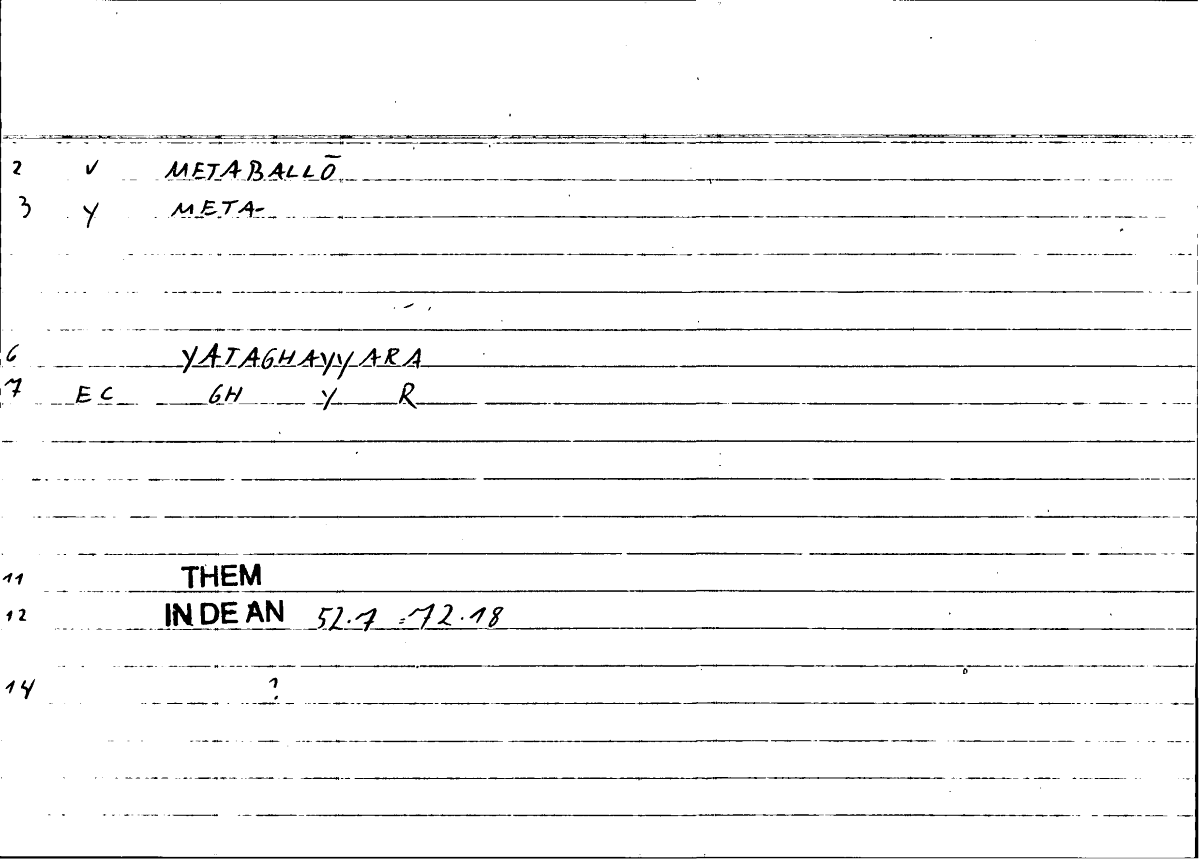 2 V METABALLŌ
3 Y META-
6 YATAGHAYYARA
7 EC GH Y R
11 THEM
12 IN DE AN 52.7 = 72.18
14 ?